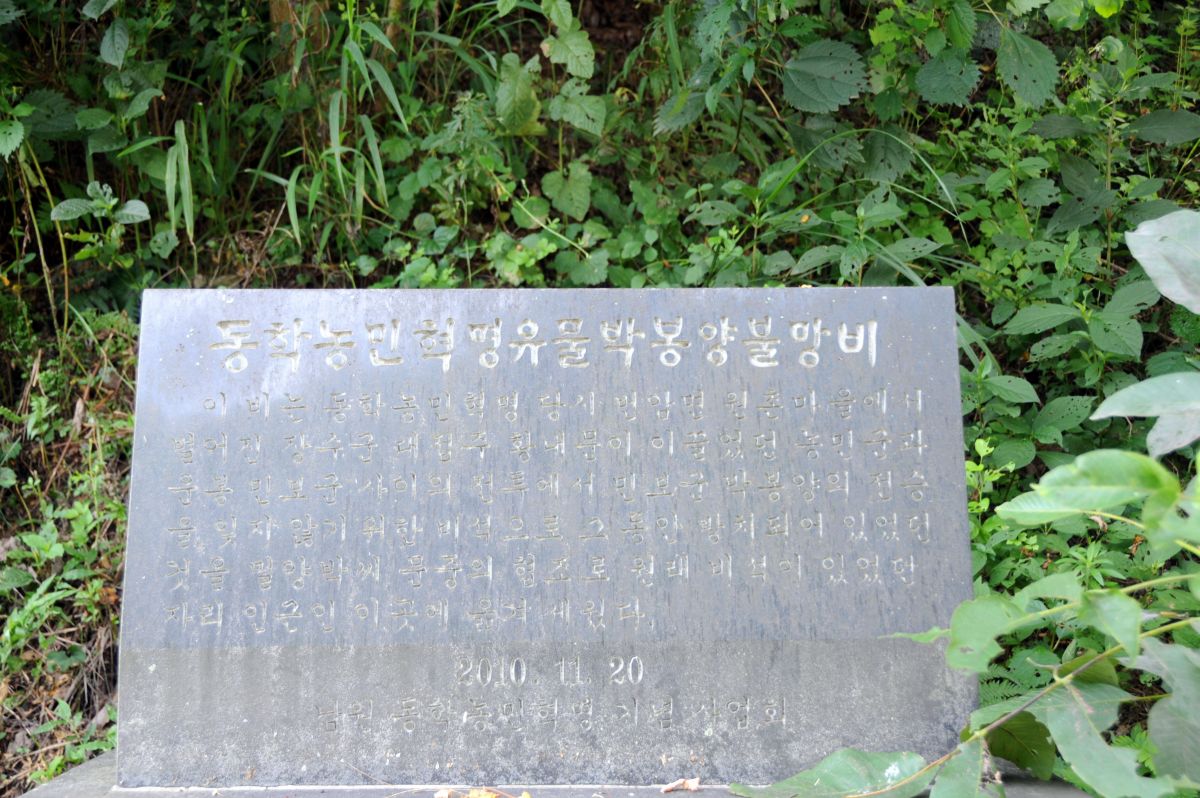 동학농민혁명유물박봉양불망비
이 비는 동학농민혁명 당시 번암면 원촌마을에서
벌어진 장수군 대접주 황내문이 이끌었던 농민군과
운봉 민보군 사이의 전투에서 민보군 박봉양의 전승
을 잊지 않기 위한 비석으로 그동안 방치되어 있었던
것을 밀양박씨 문중의 협조로 원래 비석이 있었던
자리 인근인 이곳에 옮겨 세웠다.
2010. 11. 20
남원 동학농민혁명 기념 사업회